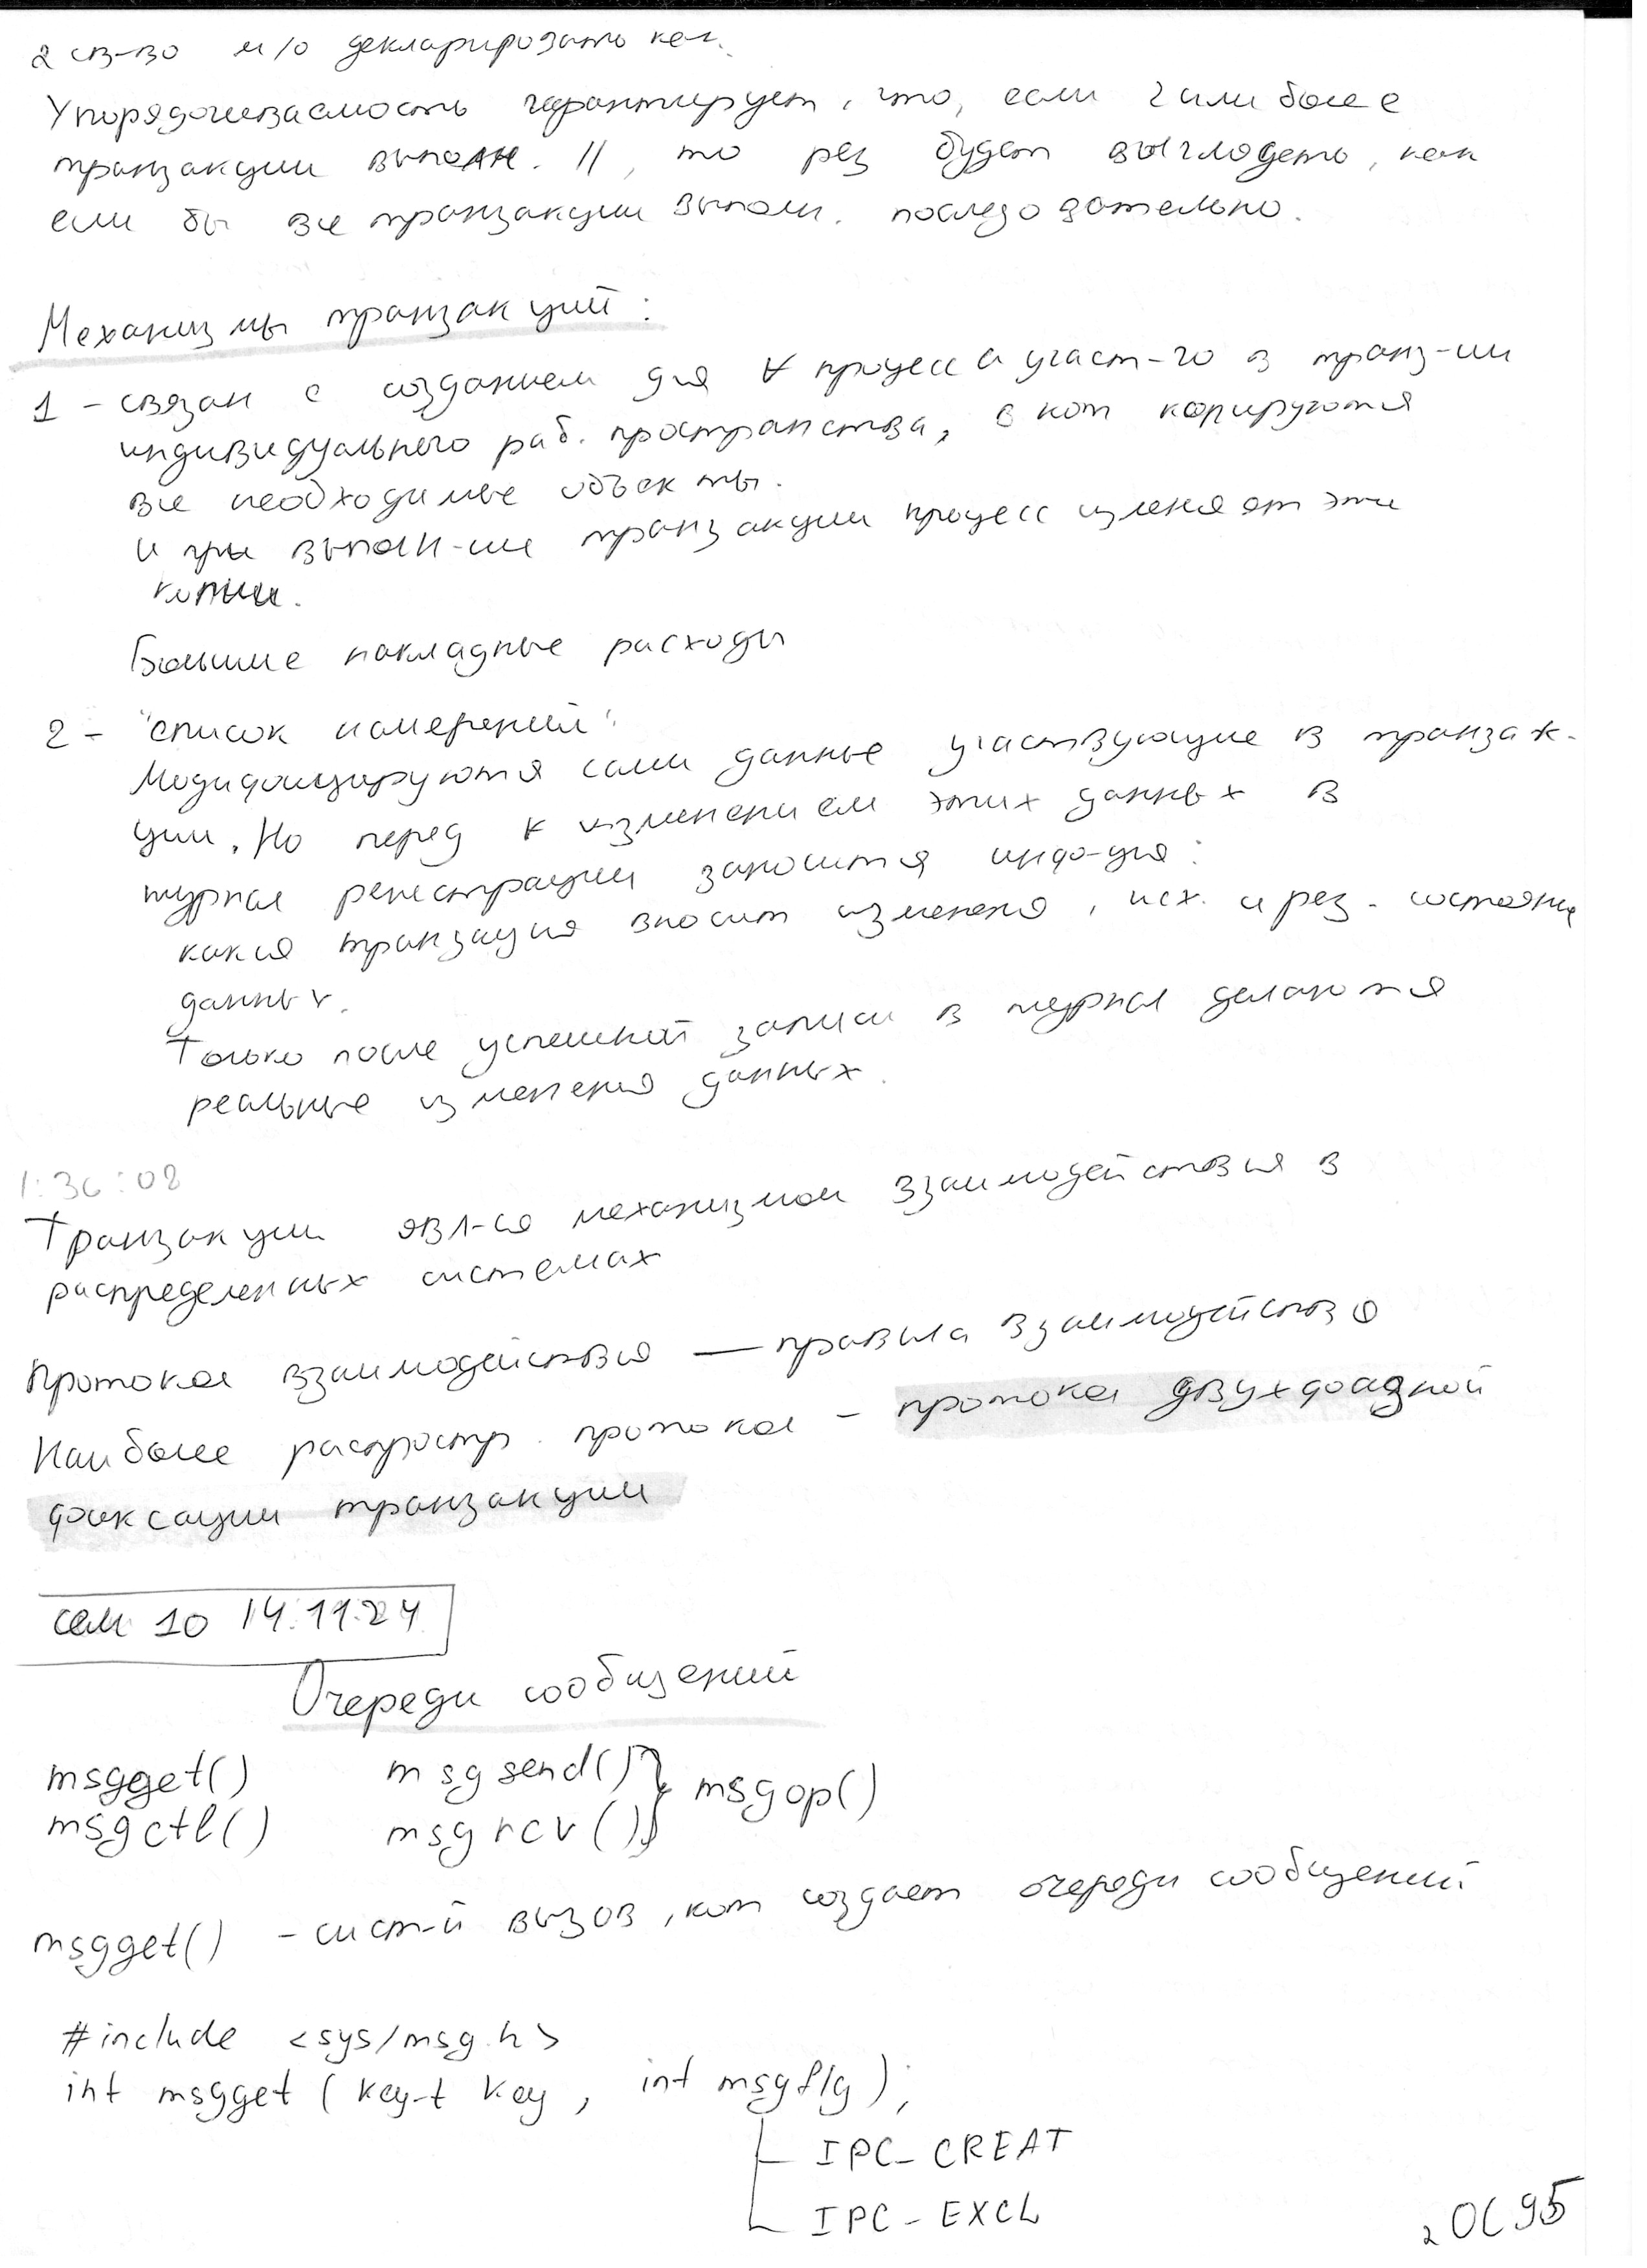 2 св-во м/о декларировать как.
Упорядочиваемость гарантирует, что, если 2 или более
транзакции выполн. //, то рез будет выглядеть, как
если бы все транзакции выполн. последовательно.
Механизмы транзакций:
1 - связан с созданием для ∀ процесса участ-го в транз-ии
индивидуального раб. пространства, в кот копируются
все необходимые объекты.
И при выполн-ии транзакции процесс изменяет эти
копии.
Большие накладные расходы
2 - "список намерений".
Модифицируются сами данные участвующие в транзак-
ции. Но перед к изменением этих данных в
журнал регистрации заносится инфо-ция:
какая транзация вносит изменения, исх. и рез. состояние
данных.
Только после успешной записи в журнал делаются
реальные изменения данных.
1:36:08
Транзакции явл-ся механизмом взаимодействия в
распределенных системах
Протокол взаимодействия — правила взаимодействия
Наиболее распростр. протокол - протокол двухфазной
фиксации транзакции
сем 10 14.11.24
Очереди сообщений
msgget() msgsend() } msgop()
msgctl() msgrcv()
msgget() - сист-й вызов, кот создает очереди сообщений
#include <sys/msg.h>
int msgget (key_t key, int msgflg);
IPC_CREAT
IPC_EXCL
2 ОС 95